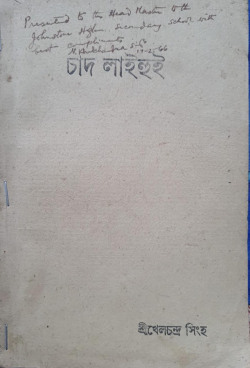 Presented to the Head Master of the
Johnstone Higher Secondary school with
best compliments
17-5-66
চাদ লাইহুই
শ্রীখেলচন্দ্র সিংহ